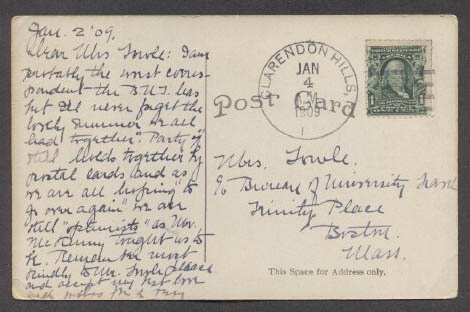 Jan. 2 '09.
Dear Mrs Towle: I am
probably the worst corres-
pondent the B.U.T. has
but I'll never forget the
lovely summer we all
had together". Party is
still holds together by
postal cards and as
we are all hoping "to
go over again" we are
still "optimists" as Mr.
McKinny taught us to
be. Remember me most
kindly to Mr. Towle please
and accept my best love
CLARENDON HILLS,
JAN
4
PM
1909
Post Card
Mrs. Towle.
c/o Bureau of University Travel
Trinity Place
Boston.
Mass.
This Space for Address only.